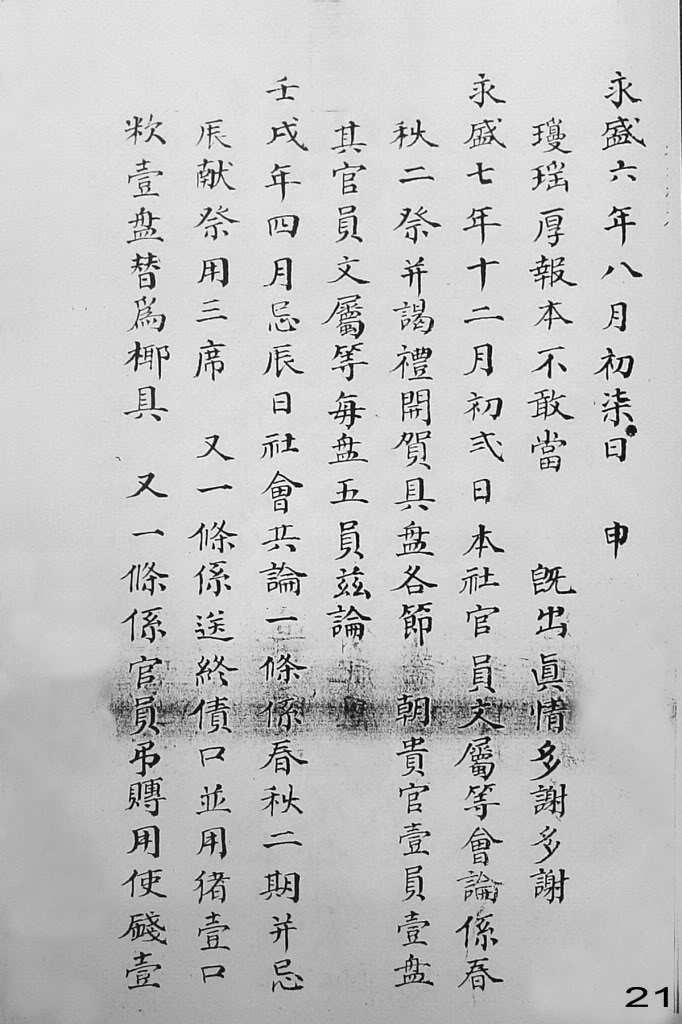 永盛六年八月初柒日　申
瓊瑶厚報本不敢當　既出眞情多謝多謝
永盛七年十二月初弍日本社官員文屬等會論係春
秋二祭并謁禮開賀具盘各節　朝貴官壹員壹盘
其官員文屬等每盘五員兹論
壬戌年四月忌辰日社會共論一條係春秋二期并忌
辰献祭用三席　又一條係送終債口並用猪壹口
粆壹盘替爲椰具　又一條係官員弔賻用使錢壹
21